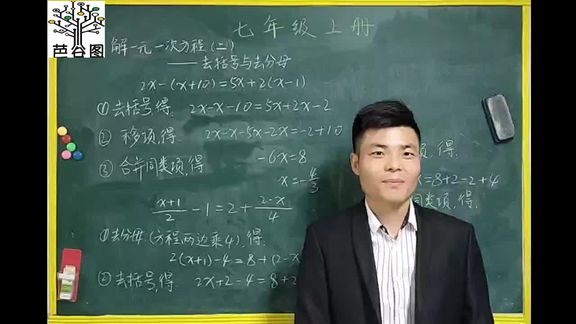 芭谷图
七年级上册
解一元一次方程(二)
——去括号与去分母
2x-(x+10)=5x+2(x-1)
①去括号,得 2x-x-10=5x+2x-2
② 移项,得 2x-x-5x-2x=-2+10
③ 合并同类项,得 -6x=8
x=-4/3
(x+1)/2-1=2+(2-x)/4
①去分母(方程两边乘4),得
2(x+1)-4=8+(2-x
②去括号,得 2x+2-4=8+2
项,得
x=8+2-2+4
同类项,得